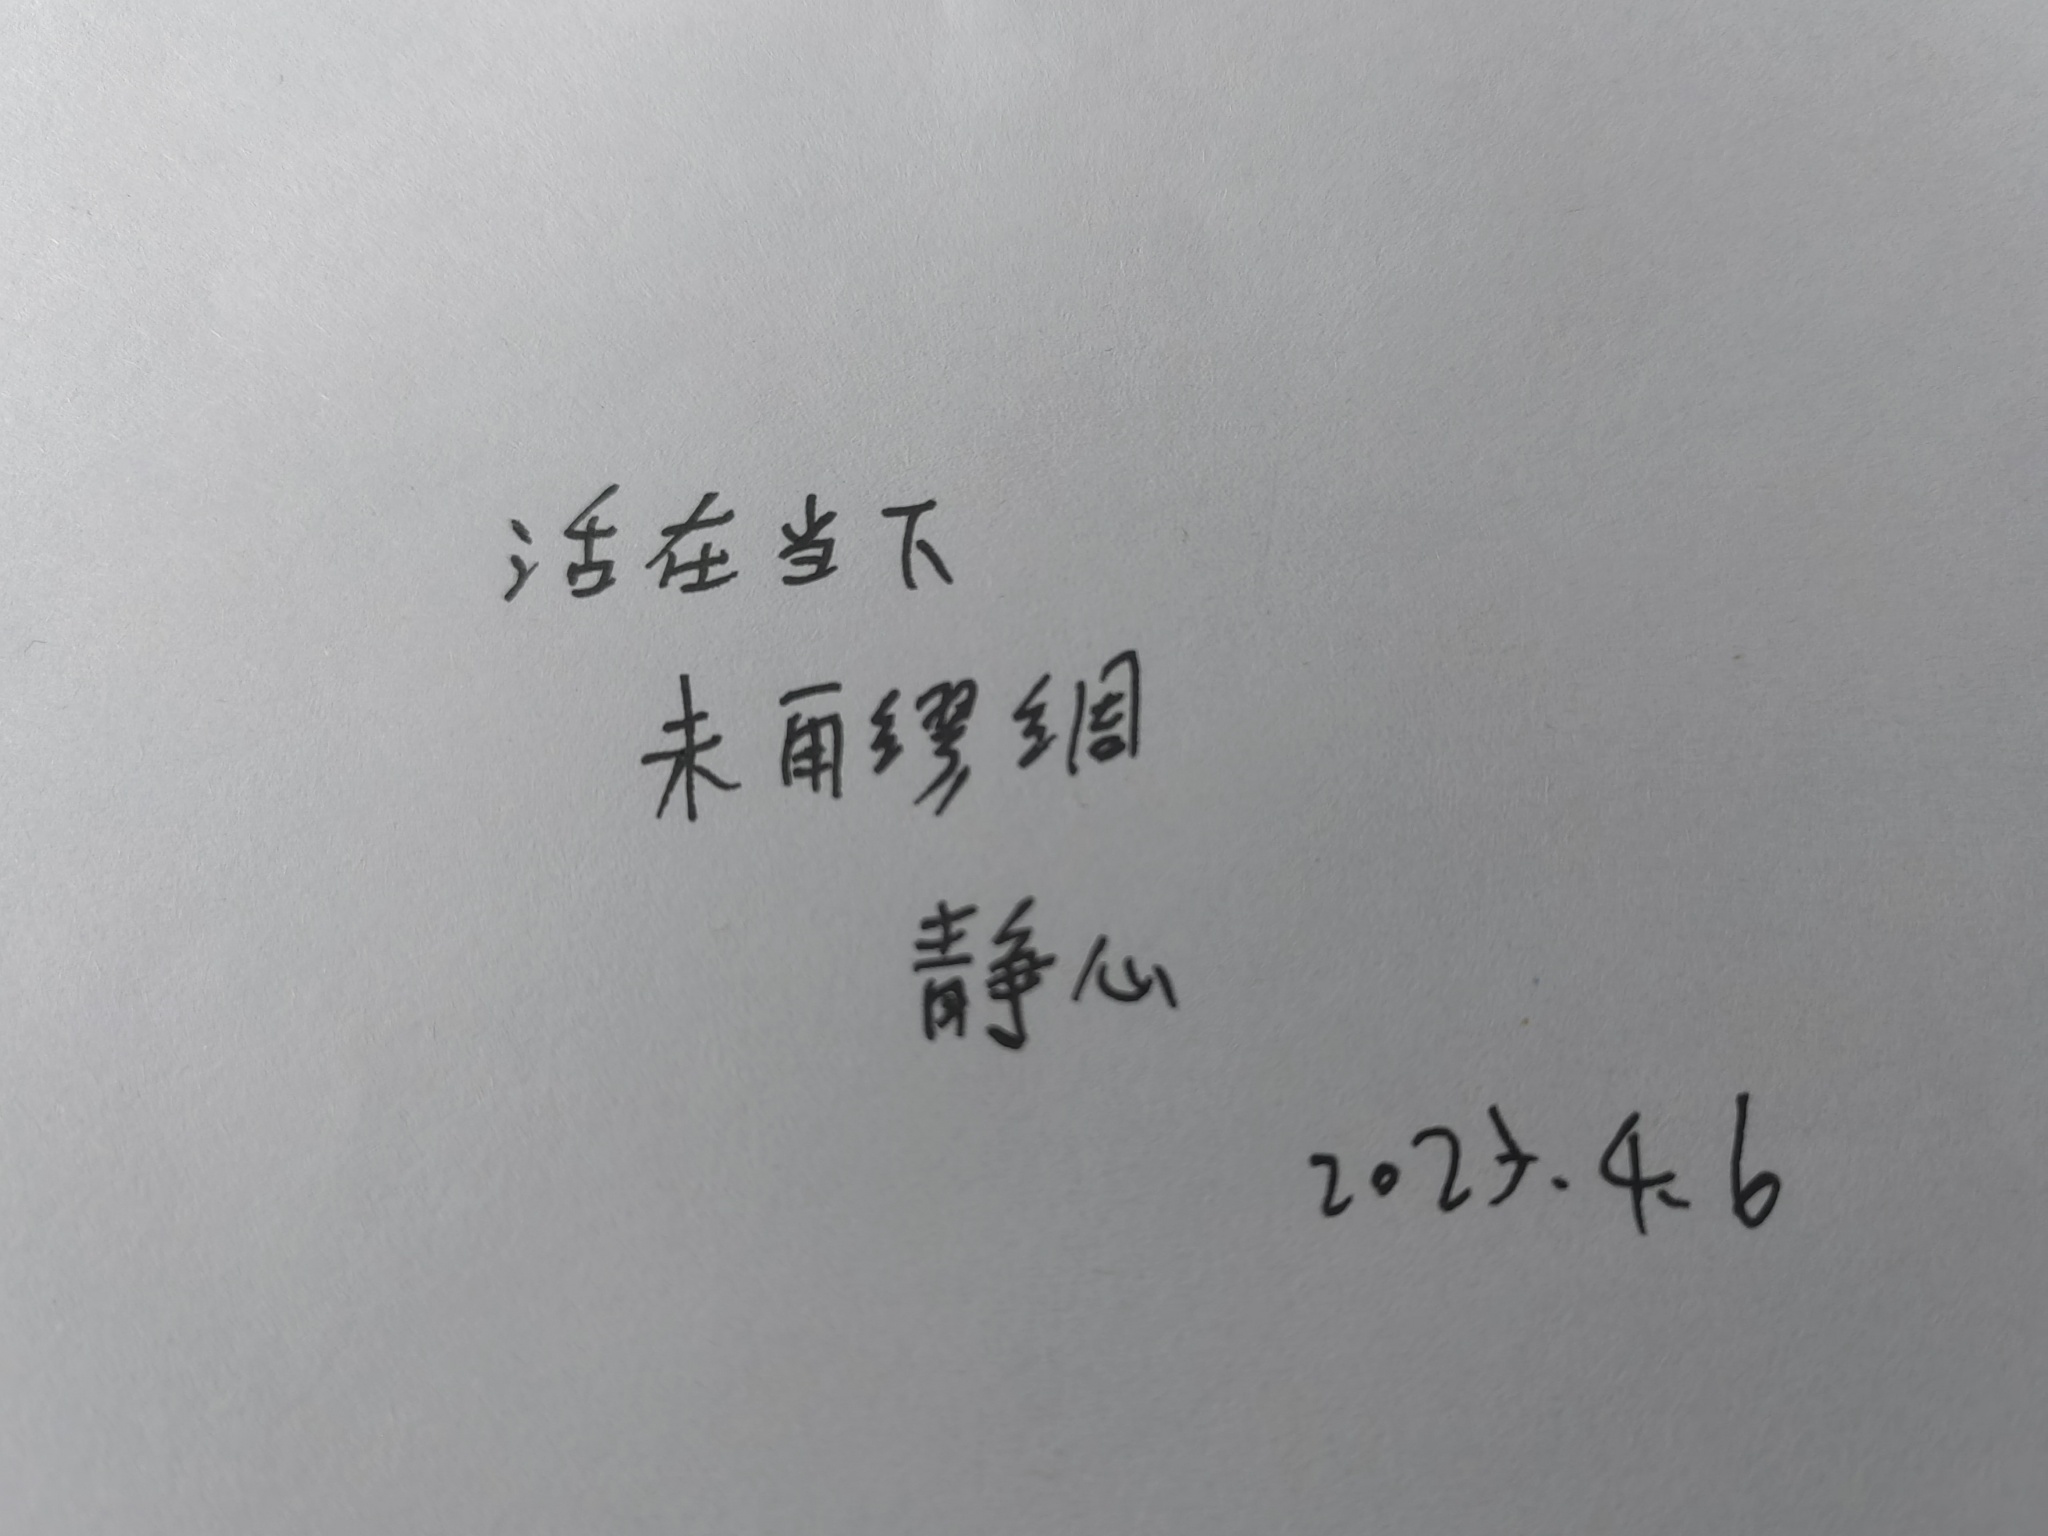 活在当下
未雨绸缪
静心
2023.4.6